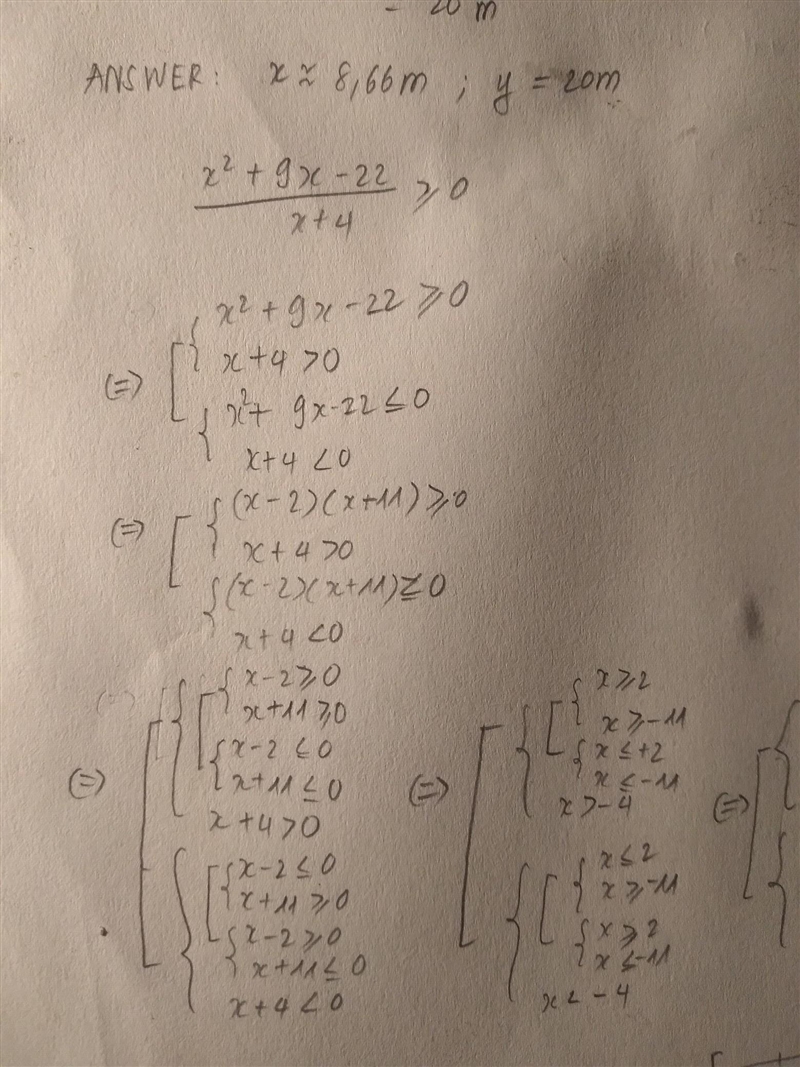 - 20 m
ANSWER: x ≈ 8,66m ; y = 20m
x² + 9x - 22
x + 4
⩾ 0
x² + 9x - 22 ⩾ 0
(=) [ { x + 4 > 0
{ x² + 9x - 22 ≤ 0
x + 4 < 0
(=) [ { (x - 2)(x + 11) ⩾ 0
x + 4 > 0
{ (x - 2)(x + 11) ≤ 0
x + 4 < 0
(=) [ { [ { x - 2 ⩾ 0
x + 11 ⩾ 0
{ x - 2 ≤ 0
x + 11 ≤ 0
x + 4 > 0
{ [ { x - 2 ≤ 0
x + 11 ⩾ 0
{ x - 2 ⩾ 0
x + 11 ≤ 0
x + 4 < 0
(=) [ { [ { x ⩾ 2
x ⩾ -11
{ x ≤ +2
x ≤ -11
x > -4
{ [ { x ≤ 2
x ⩾ -11
{ x ⩾ 2
x ≤ -11
x < -4
(=) [ {
{